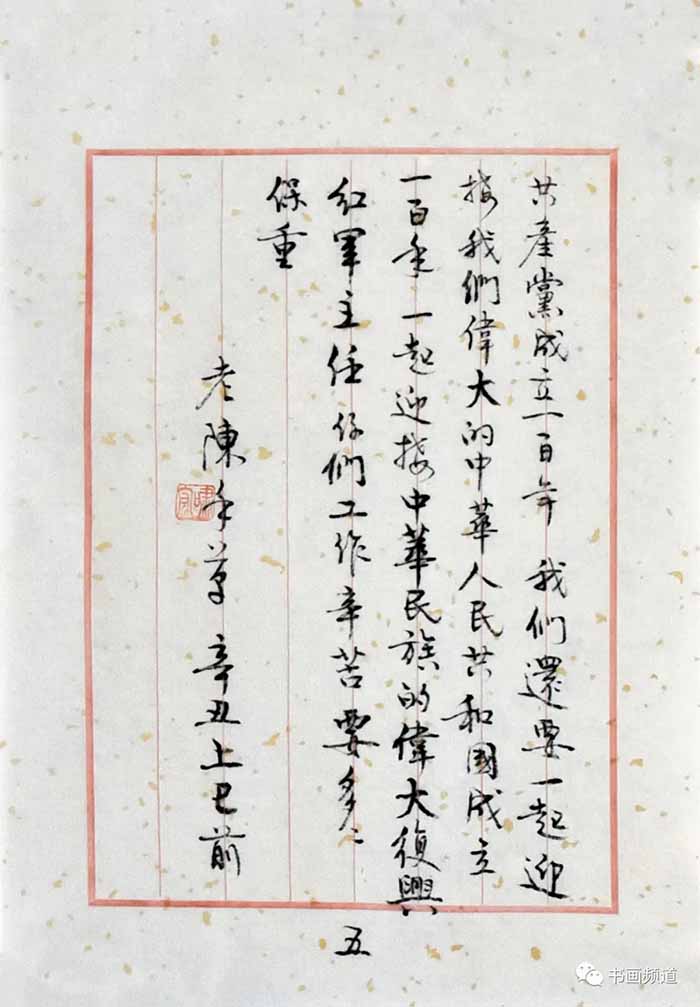 共產黨成立一百年 我们還要一起迎
接我們偉大的中華人民共和國成立
一百年 一起迎接中華民族的偉大復興
紅軍主任 你們工作辛苦 要多〻
保重
老陳手草 辛丑上巳前
五
书画频道